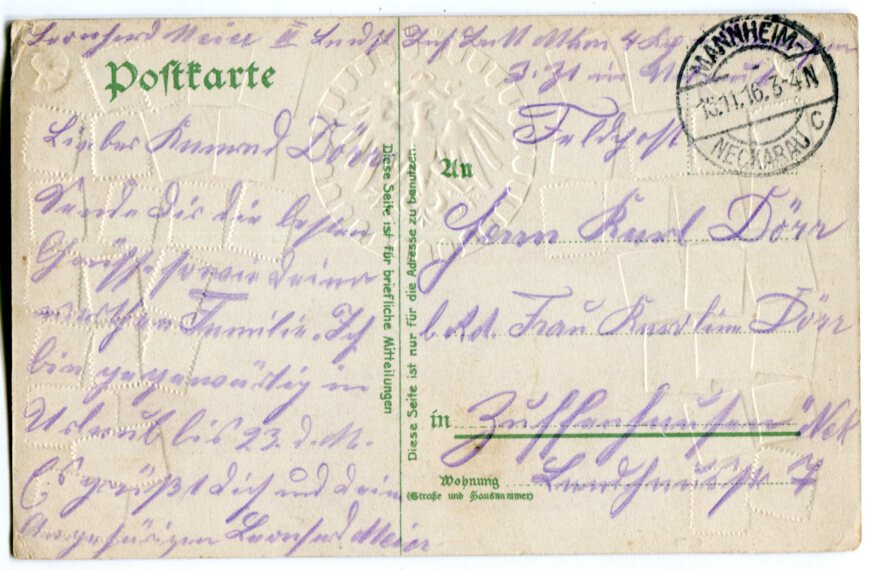 Leonhard Meier III Landst. Inf. Batt
Z. Zt. in Urlaub
Postkarte
Lieber Konrad Dörr
Sende Dir die besten
Grüsse sowie Deiner
werthen Familie. Ich
bin gegenwärtig in
Urlaub bis 23. d. M.
Es grüßt Dich und Deine
Angehörigen Leonhard Meier
Diese Seite ist für briefliche Mitteilungen
Diese Seite ist nur für die Adresse zu benutzen.
MANNHEIM-
11.16. 3-4N
NECKARAU C
Feldpost
An
Herrn Karl Dörr
Frau Karoline Dörr
in Zuffenhausen
Wohnung
(Straße und Hausnummer)